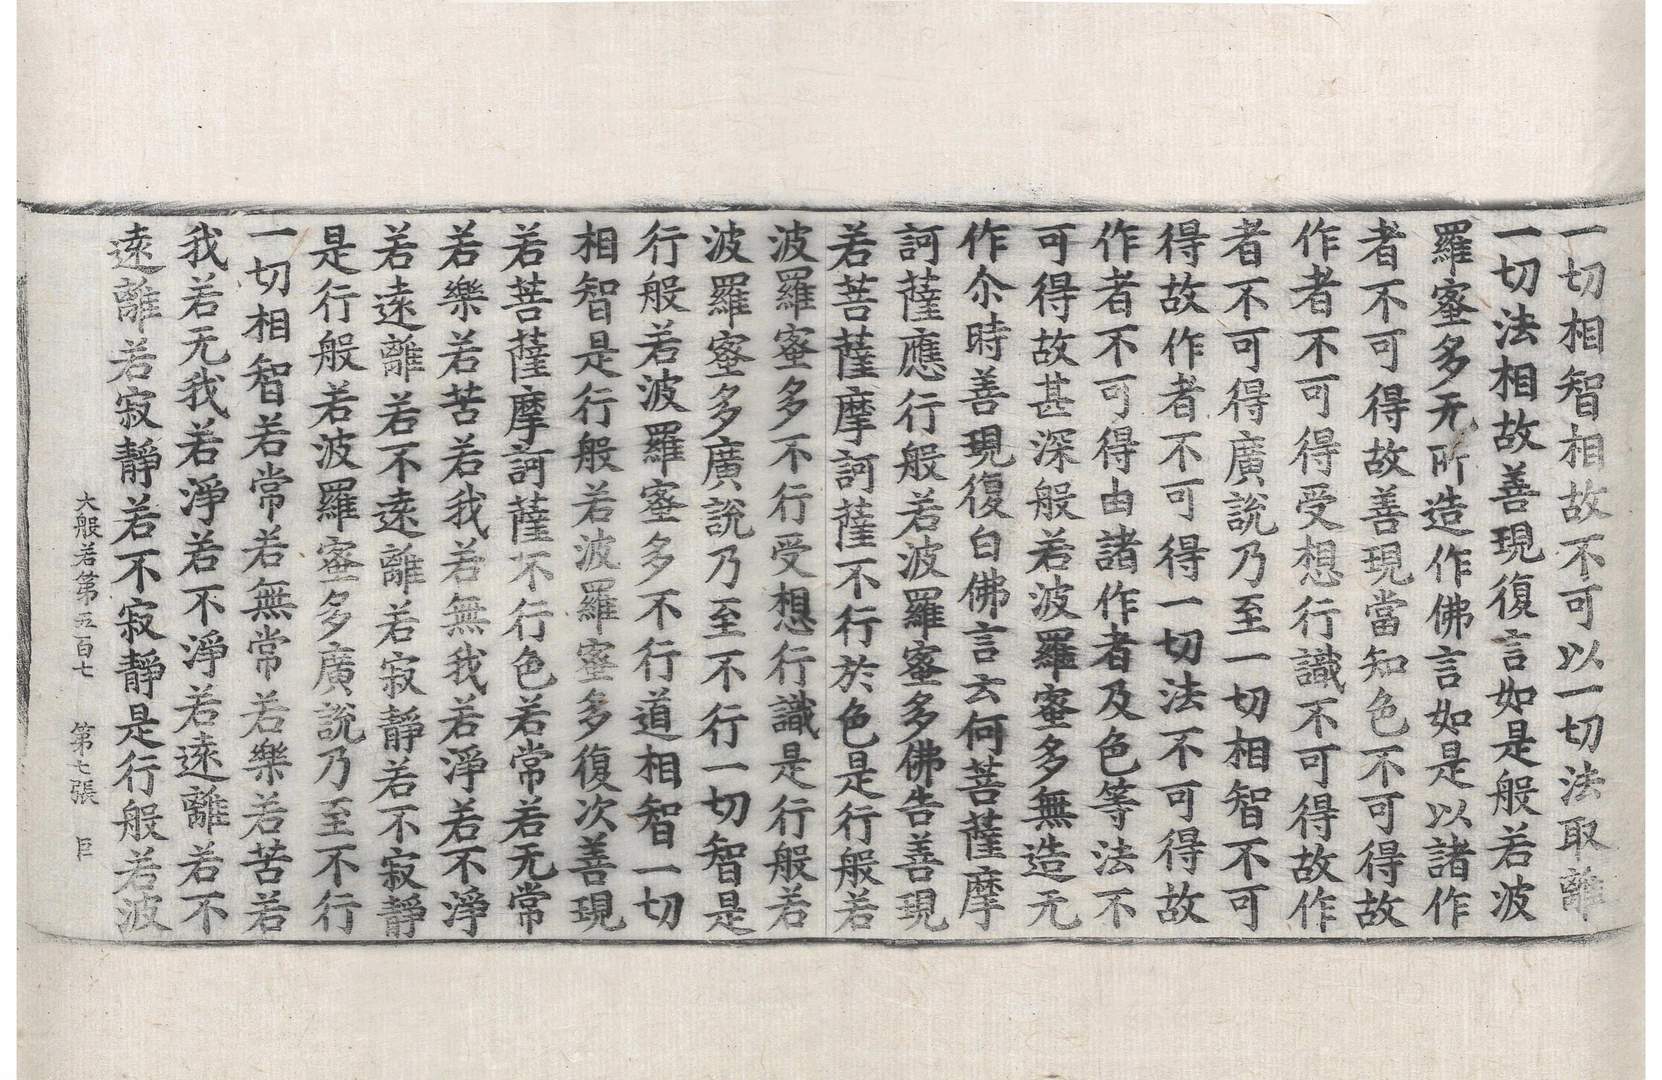 一切相智相故不可以一切法取離
一切法相故善現復言如是般若波
羅蜜多无所造作佛言如是以諸作
者不可得故善現當知色不可得故
作者不可得受想行識不可得故作
者不可得廣說乃至一切相智不可
得故作者不可得一切法不可得故
作者不可得由諸作者及色等法不
可得故甚深般若波羅蜜多無造无
作尒時善現復白佛言云何菩薩摩
訶薩應行般若波羅蜜多佛告善現
若菩薩摩訶薩不行於色是行般若
波羅蜜多不行受想行識是行般若
波羅蜜多廣說乃至不行一切智是
行般若波羅蜜多不行道相智一切
相智是行般若波羅蜜多復次善現
若菩薩摩訶薩不行色若常若无常
若樂若苦若我若無我若淨若不淨
若遠離若不遠離若寂靜若不寂靜
是行般若波羅蜜多廣說乃至不行
一切相智若常若無常若樂若苦若
我若无我若淨若不淨若遠離若不
遠離若寂靜若不寂靜是行般若波
大般若第五百七 第七張 巨